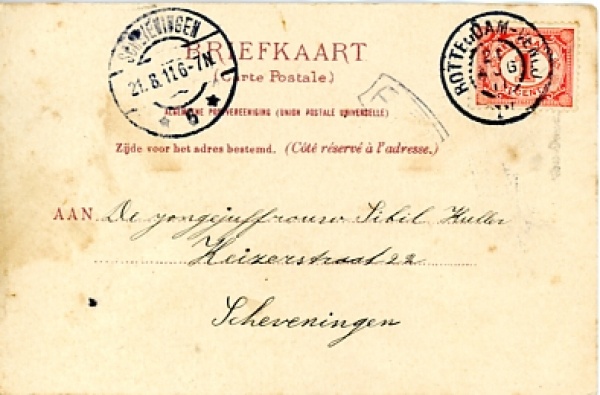 SCHEVENINGEN
21.8.11 6-7N
6
BRIEFKAART
(Carte Postale)
ALGEMEENE POSTVEREENIGING (UNION POSTALE UNIVERSELLE)
Zijde voor het adres bestemd. (Côté réservé à l'adresse.)
ROTTERDAM-VENLO
21 AUG
IV
1
AAN De jongejuffrouw Sibil Huller
Keizerstraat 22
Scheveningen